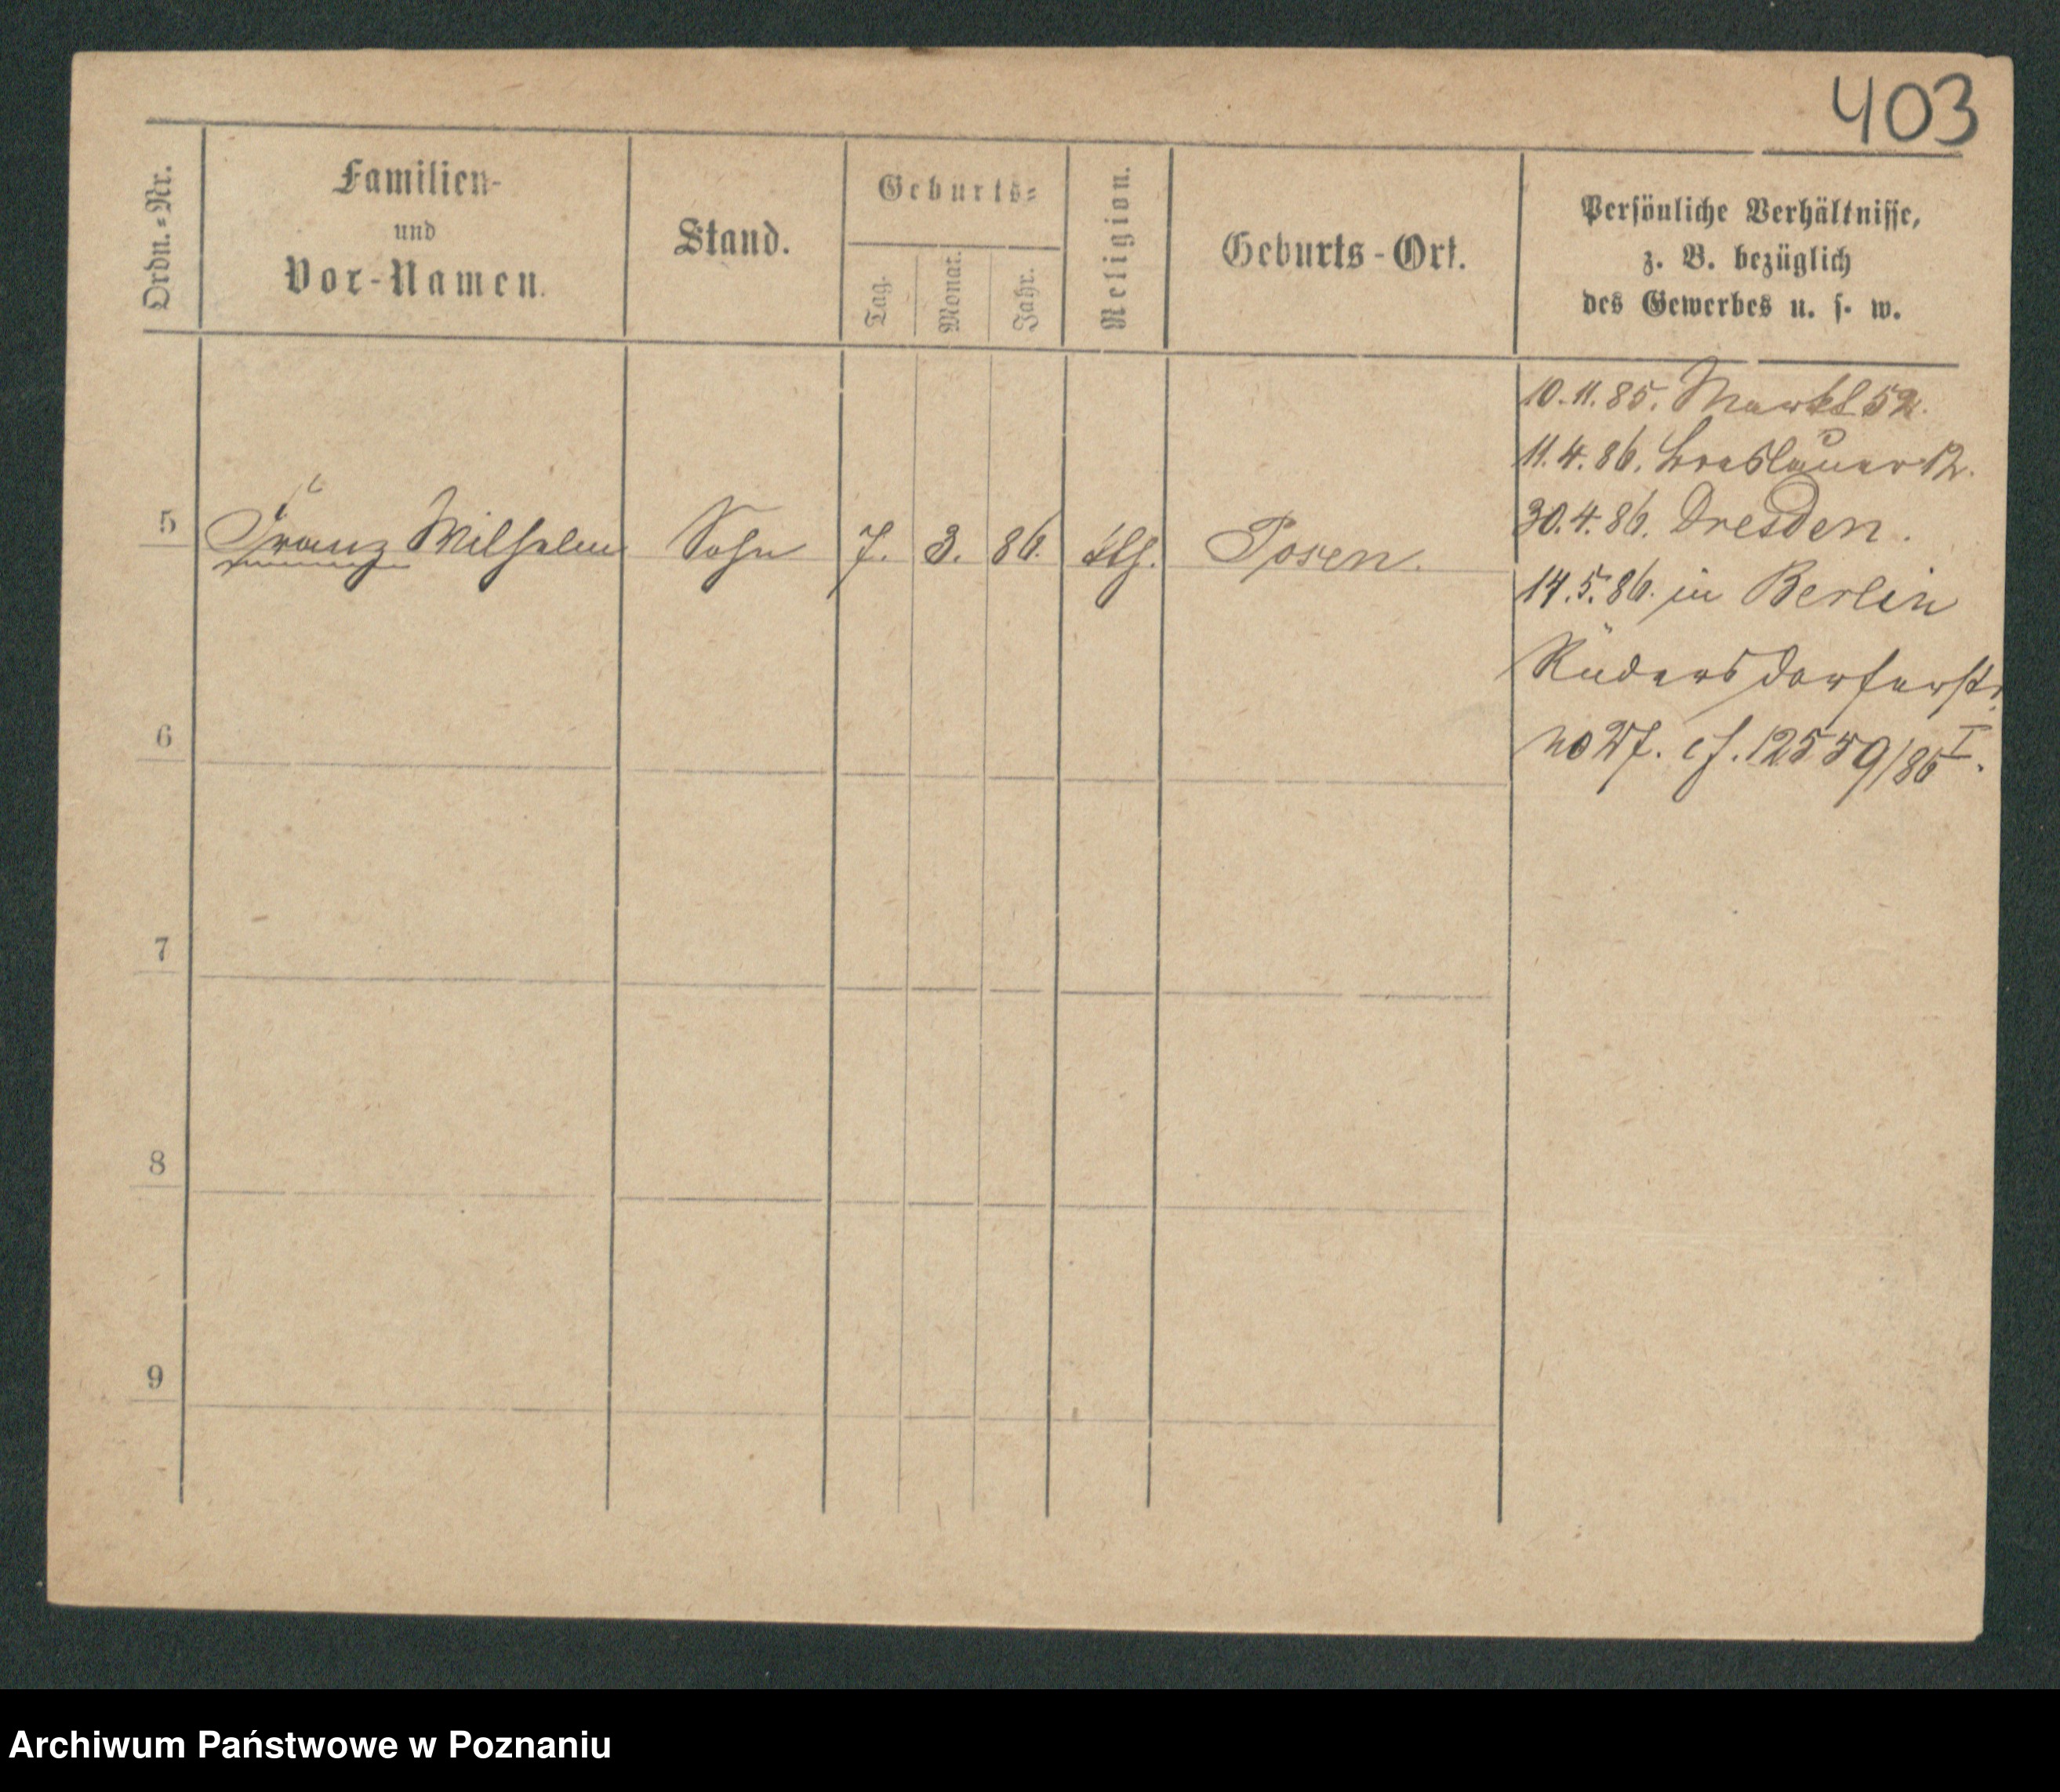 403
Ordn.-Nr.
Familien-
und
Vor-Namen.
Stand.
Geburts-
Tag.
Monat.
Jahr.
Religion.
Geburts-Ort.
Persönliche Verhältnisse,
z. B. bezüglich
des Gewerbes u. s. w.
10.11.85. Markt 52.
11.4.86. Breslauer 12.
30.4.86. Dresden.
14.5.86. in Berlin
Rüdersdorferstr.
no 27. cf. 12559/86 I.
5 Franz Wilhelm Sohn 7. 3. 86. Posen.
6
7
8
9
Archiwum Państwowe w Poznaniu